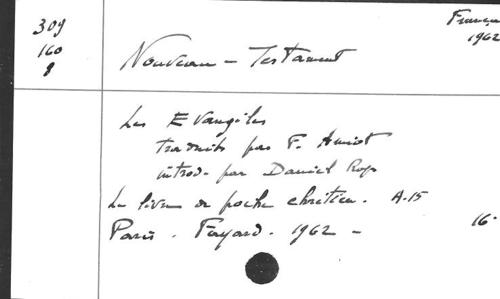 309
160
8
Français
1962
Nouveau - Testament
Les Evangiles
traduits par F. Amiot
introd. par Daniel Rops
Le livre de poche chrétien. A-15
Paris - Fayard - 1962 -
16·